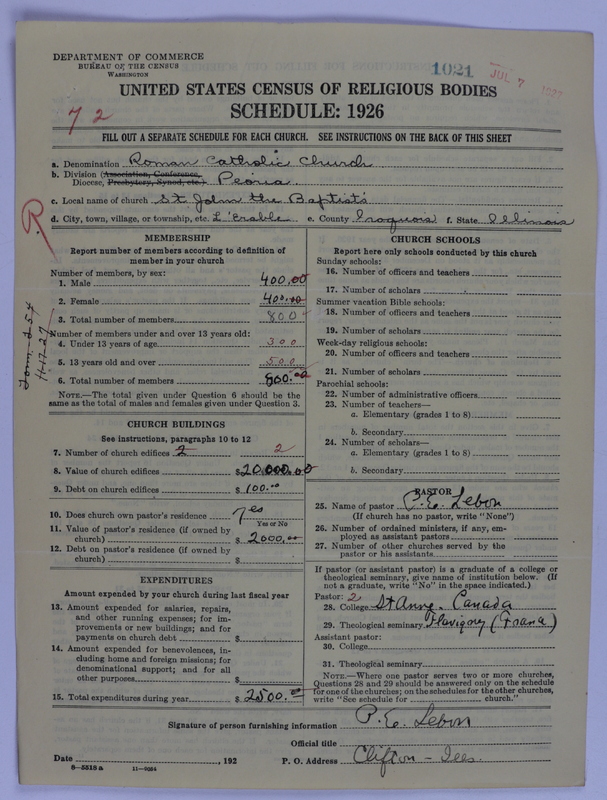 DEPARTMENT OF COMMERCE
BUREAU OF THE CENSUS
WASHINGTON
1021
JUL 7 1927
UNITED STATES CENSUS OF RELIGIOUS BODIES
72
SCHEDULE: 1926
FILL OUT A SEPARATE SCHEDULE FOR EACH CHURCH. SEE INSTRUCTIONS ON THE BACK OF THIS SHEET
a. Denomination Roman Catholic Church
b. Division (Association, Conference,
Diocese, Presbytery, Synod, etc.) Peoria
c. Local name of church St John the Baptist's
d. City, town, village, or township, etc. L'Erable e. County Iroquois f. State Illinois
R
MEMBERSHIP
Report number of members according to definition of
member in your church
Number of members, by sex:
1. Male 400.00
2. Female 400.00
3. Total number of members 800
Number of members under and over 13 years old:
4. Under 13 years of age 300
5. 13 years old and over 500
6. Total number of members 800.00
NOTE.—The total given under Question 6 should be the
same as the total of males and females given under Question 3.
Form-254
CHURCH BUILDINGS
See instructions, paragraphs 10 to 12
7. Number of church edifices 2 2
8. Value of church edifices $20000.00
9. Debt on church edifices $100.00
10. Does church own pastor's residence? yes
Yes or No
11. Value of pastor's residence (if owned by
church) $2000.00
12. Debt on pastor's residence (if owned by
church) $
EXPENDITURES
Amount expended by your church during last fiscal year
13. Amount expended for salaries, repairs,
and other running expenses; for im-
provements or new buildings; and for
payments on church debt $
14. Amount expended for benevolences, in-
cluding home and foreign missions; for
denominational support; and for all
other purposes $
15. Total expenditures during year $2500.00
CHURCH SCHOOLS
Report here only schools conducted by this church
Sunday schools:
16. Number of officers and teachers
17. Number of scholars
Summer vacation Bible schools:
18. Number of officers and teachers
19. Number of scholars
Week-day religious schools:
20. Number of officers and teachers
21. Number of scholars
Parochial schools:
22. Number of administrative officers
23. Number of teachers—
a. Elementary (grades 1 to 8)
b. Secondary
24. Number of scholars—
a. Elementary (grades 1 to 8)
b. Secondary
PASTOR
25. Name of pastor P. E. Lebon
(If church has no pastor, write "None")
26. Number of ordained ministers, if any, em-
ployed as assistant pastors
27. Number of other churches served by the
pastor or his assistants
If pastor (or assistant pastor) is a graduate of a college or
theological seminary, give name of institution below. (If
not a graduate, write "No" in the space indicated.)
Pastor: 2
28. College St Anne. Canada
29. Theological seminary Flavigny (France)
Assistant pastor:
30. College
31. Theological seminary
NOTE.—Where one pastor serves two or more churches,
Questions 28 and 29 should be answered only on the schedule
for one of the churches; on the schedules for the other churches,
write "See schedule for church."
Signature of person furnishing information P. E. Lebon
Official title
Date , 192 P. O. Address Clifton - Ills.
8—5518a 11—9054